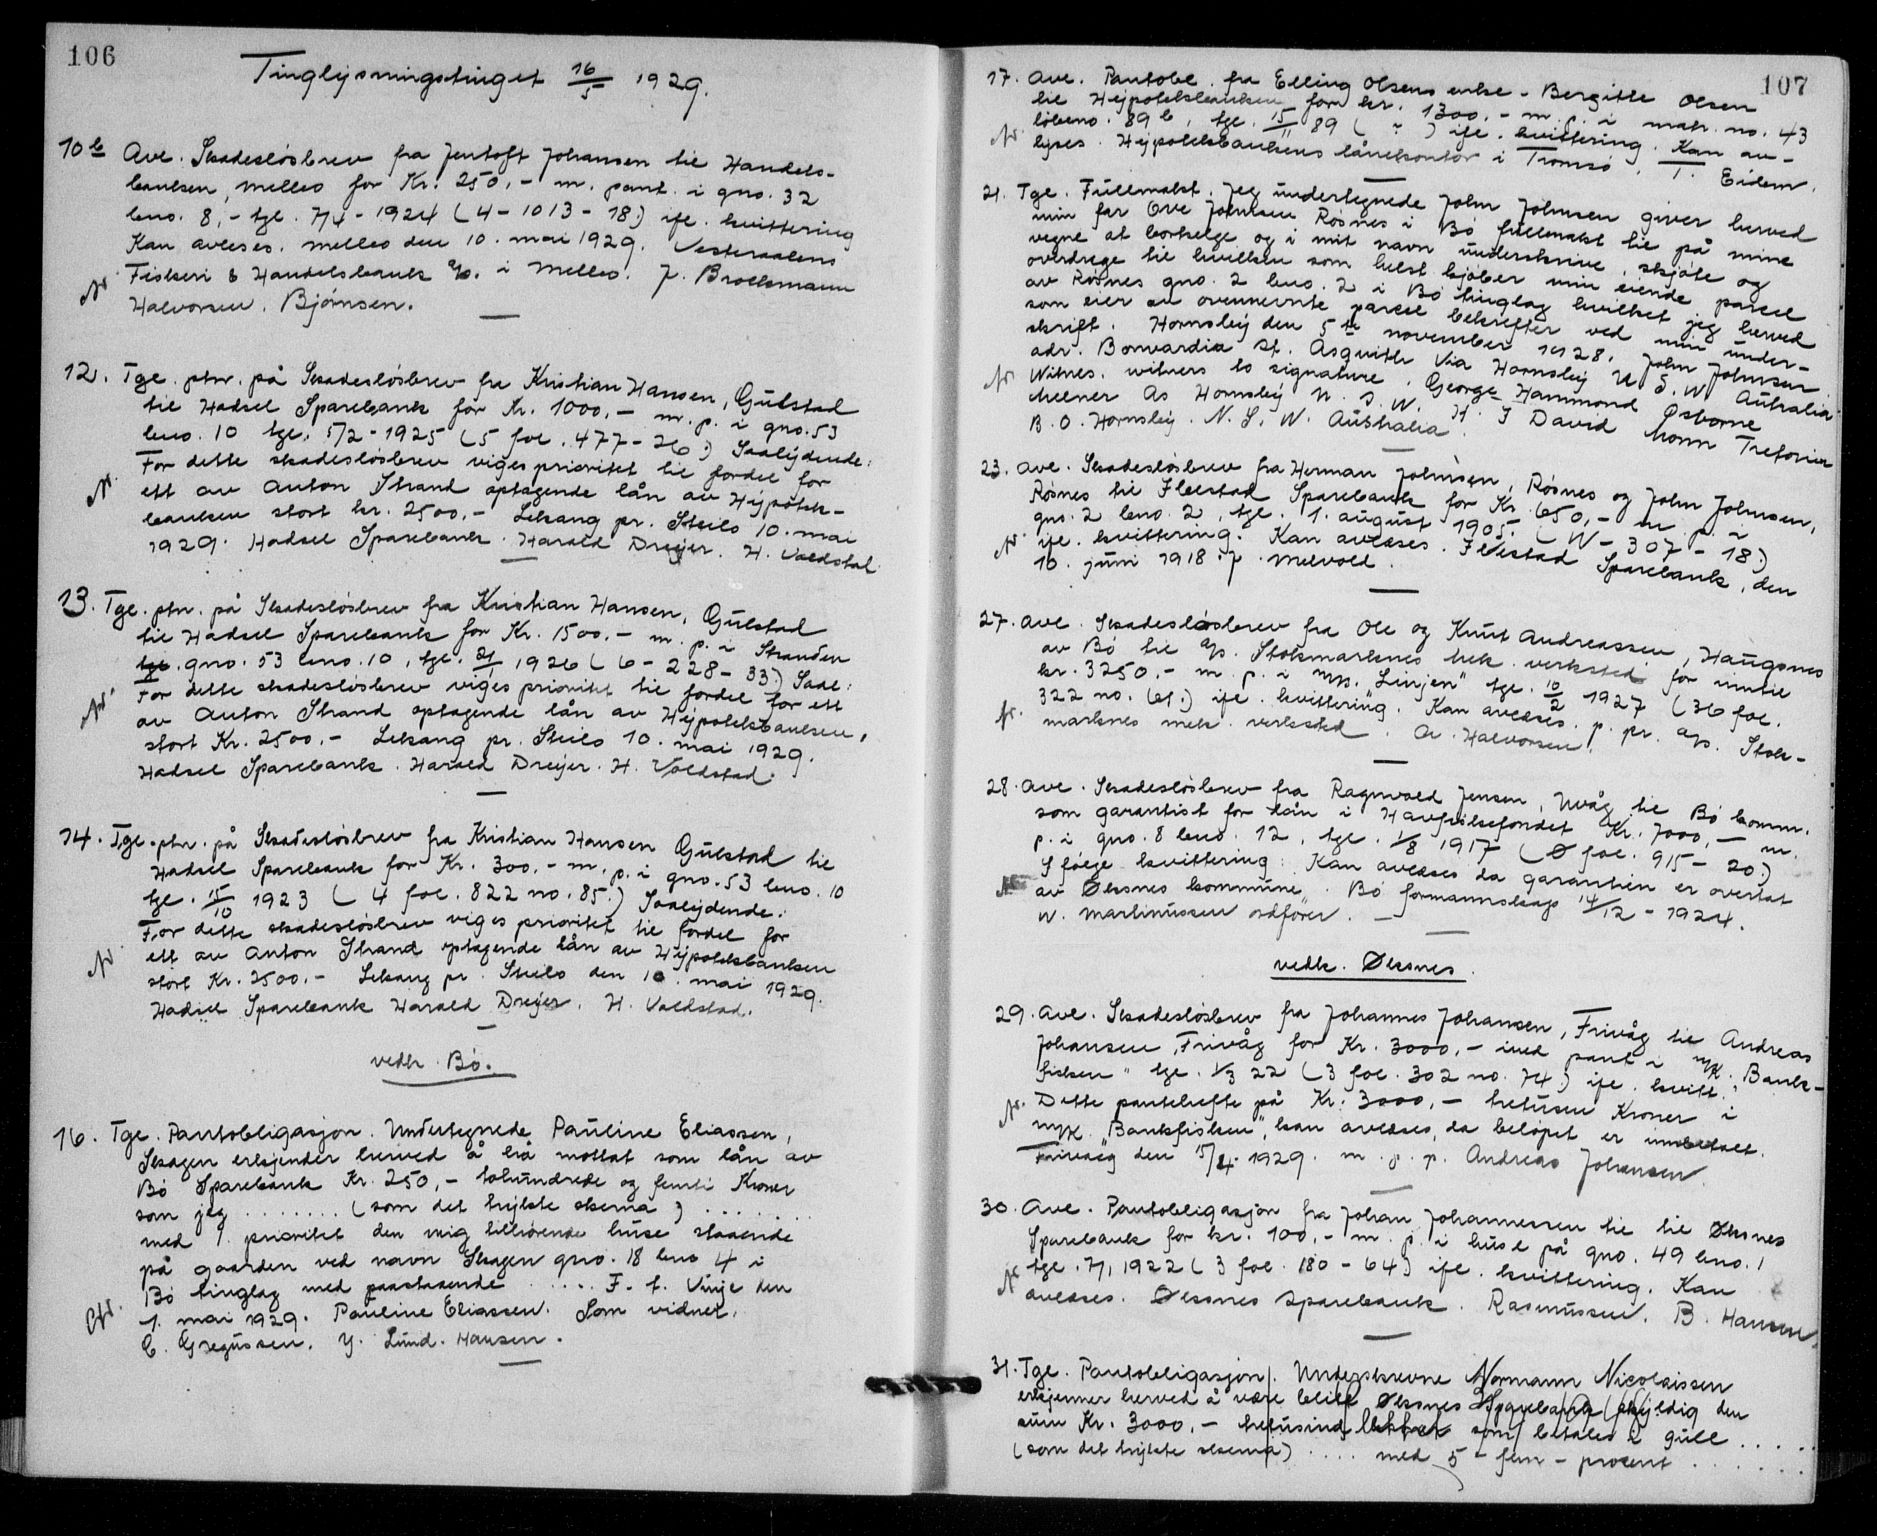 106
Tinglysningstinget 16/5 1929.
10b Avl. Skadesløsbrev fra Jentoft Johansen til Handels-
banken, Melbo for Kr. 250,- m. pant. i gno. 32
bno. 8,- tgl. 7/4 - 1924 (4 - 1013 - 18.) ifl. kvittering
Kan avleses. Melbo den 10. mai 1929. Vesteraalens
Fiskeri & Handelsbank a/s. i Melbo. p. Brochmann
Halvorsen. Bjørnsen.
12. Tgl. ptn. på Skadesløsbrev fra Kristian Hansen, Gulstad
til Hadsel Sparebank for Kr. 1000,- m. p. i gno. 53
bno. 10 tgl. 5/2 - 1925 (5 fol. 477 - 26.) Saalydende:
For dette skadesløsbrev viges prioritet til fordel for
ett av Anton Strand optagende lån av Hypotek-
banken stort kr. 2500,- Lekang pr. Steilo 10. mai
1929. Hadsel Sparebank. Harald Dreyer. H. Voldstad
13. Tgl. ptn. på Skadesløsbrev fra Kristian Hansen, Gulstad
til Hadsel Sparebank for Kr. 1500,- m. p. i Stranden
tgl. gno. 53 bno. 10, tgl. 21/1 1926 (6 - 228 - 33.) Saal:
For dette skadesløsbrev viges prioritet til fordel for ett
av Anton Strand optagende lån av Hypotekbanken,
stort Kr. 2500,- Lekang pr. Steilo 10. mai 1929.
Hadsel Sparebank. Harald Dreyer. H. Voldstad.
14. Tgl. ptn. på Skadesløsbrev fra Kristian Hansen Gulstad til
Hadsel Sparebank for Kr. 300,- m. p. i gno. 53 bno. 10
tgl. 15/10 1923 (4 fol. 822 no. 85.) Saalydende:
For dette skadesløsbrev viges prioritet til fordel for
ett av Anton Strand optagende lån av Hypotekbanken
stort Kr. 2500,- Lekang pr. Steilo den 10. mai 1929.
Hadsel Sparebank Harald Dreyer. H. Voldstad.
vedk. Bø.
16. Tgl. Pantobligasjon. Undertegnede Pauline Eliassen,
Skagen erkjender herved å ha mottat som lån av
Bø Sparebank Kr. 250,- tohundrede og femti Kroner
som jeg ....... (som det trykte skema) .......
med 1. prioritet den mig tilhørende huse staaende
på gaarden ved navn Skagen gno. 18 bno 4 i
Bø tinglag med paastaaende ..... F. t. Vinje den
1. mai 1929. Pauline Eliassen. Som vidner.
C. Gregussen. Y. Lund. Hansen.
107
17. Avl. Pantobl. fra Elling Olsens enke - Bergitte Olsen
til Hypotekbanken for kr. 1300,- m. p. i matr. no. 43
løbeno. 89 b, tgl. 15/11 89 ( ? ) ifl. kvittering. Kan av-
lyses. Hypotekbankens lånekontor i Tromsø. T. Eidem.
21. Tgl. Fullmakt. Jeg undertegnede John Johnsen giver herved
min far Ove Johnsen Røsnes i Bø fullmakt til på mine
vegne at bortselge og i mit navn underskrive, skjøte og
overdrage til hvilken som helst kjøber min eiende parcel
av Røsnes gno. 2 bno. 2 i Bø tinglag hvilket jeg herved
som eier av ovennevnte parcel bekrefter ved min under-
skrift. Hornsby den 5te november 1928. John Johnsen
adr. Bonvardia St. Asquith Via Hornsby N. S. W Authalia.
Witnes. witners to signature. George Hammond Osborne
Melner As Hornsby N. S. W. H. J David Morm Treforier
B. O. Hornsby. N. S. W. Authalia.
23. Avl. Skadesløsbrev fra Herman Johnsen, Røsnes og John Johnsen,
Røsnes til Ibestad Sparebank for Kr. 650,- m p. i
gno. 2 bno. 2, tgl. 1. august 1905. (N - 307 - 18.)
ifl. kvittering. Kan avleses. Ibestad Sparebank, den
10. juni 1918. p. Melvold.
27. Avl. Skadesløsbrev fra Ole og Knut Andreassen, Haugsnes
av Bø til a/s. Stokmarknes Mek. verksted for inntil
kr. 3250,- m. p. i m/s. "Linjen" tgl. 10/2 - 1927 (36 fol.
322 no. 61.) ifl. kvittering. Kan avleses. p. pr. a/s. Stok-
marknes mek. verksted. A. Halvorsen.
28. Avl. Skadesløsbrev fra Ragnvald Jensen, Uvåg til Bø komm.
som garantist for lån i Havfiskefondet Kr. 7000,- m.
p. i gno. 8 bno. 12, tgl. 1/8 1917 (Ø fol. 915 - 20.)
Ifølge kvittering: Kan avleses da garantien er overtat
av Øksnes kommune. Bø formannskap 14/12 - 1924.
N. Martinussen ordfører.
vedk. Øksnes.
29. Avl. Skadesløsbrev fra Johannes Johansen, Frivåg til Andreas
Johansen, Frivåg for Kr. 3000,- med pant i m/k. "Bank-
fisken" tgl. 1/3 22 (3 fol. 302 no. 74) ifl. kvitt:
Dette pantehefte på Kr. 3000,- tretusen Kroner i
m/k. "Bankfisken", kan avleses, da beløpet er innbetalt.
Frivaag den 15/4. 1929. m. p. p. Andreas Johansen
30. Avl. Pantobligasjon fra Johan Johannessen til til Øksnes
Sparebank for kr. 100,- m. p. i huse på gno. 49 bno. 1
tgl. 7/1 1922 (3 fol. 180 - 64) ifl. kvittering. Kan
avleses. Øksnes Sparebank. Rasmussen. B. Hansen
31. Tgl. Pantobligasjon. Underskrevne Normann Nicolaissen
erkjenner herved å være blitt Øksnes Sparebank skyldig den
sum Kr. 3000,- tretusind som betales i gull .....
(som det trykte skema) .... med 5 - fem - procent .......